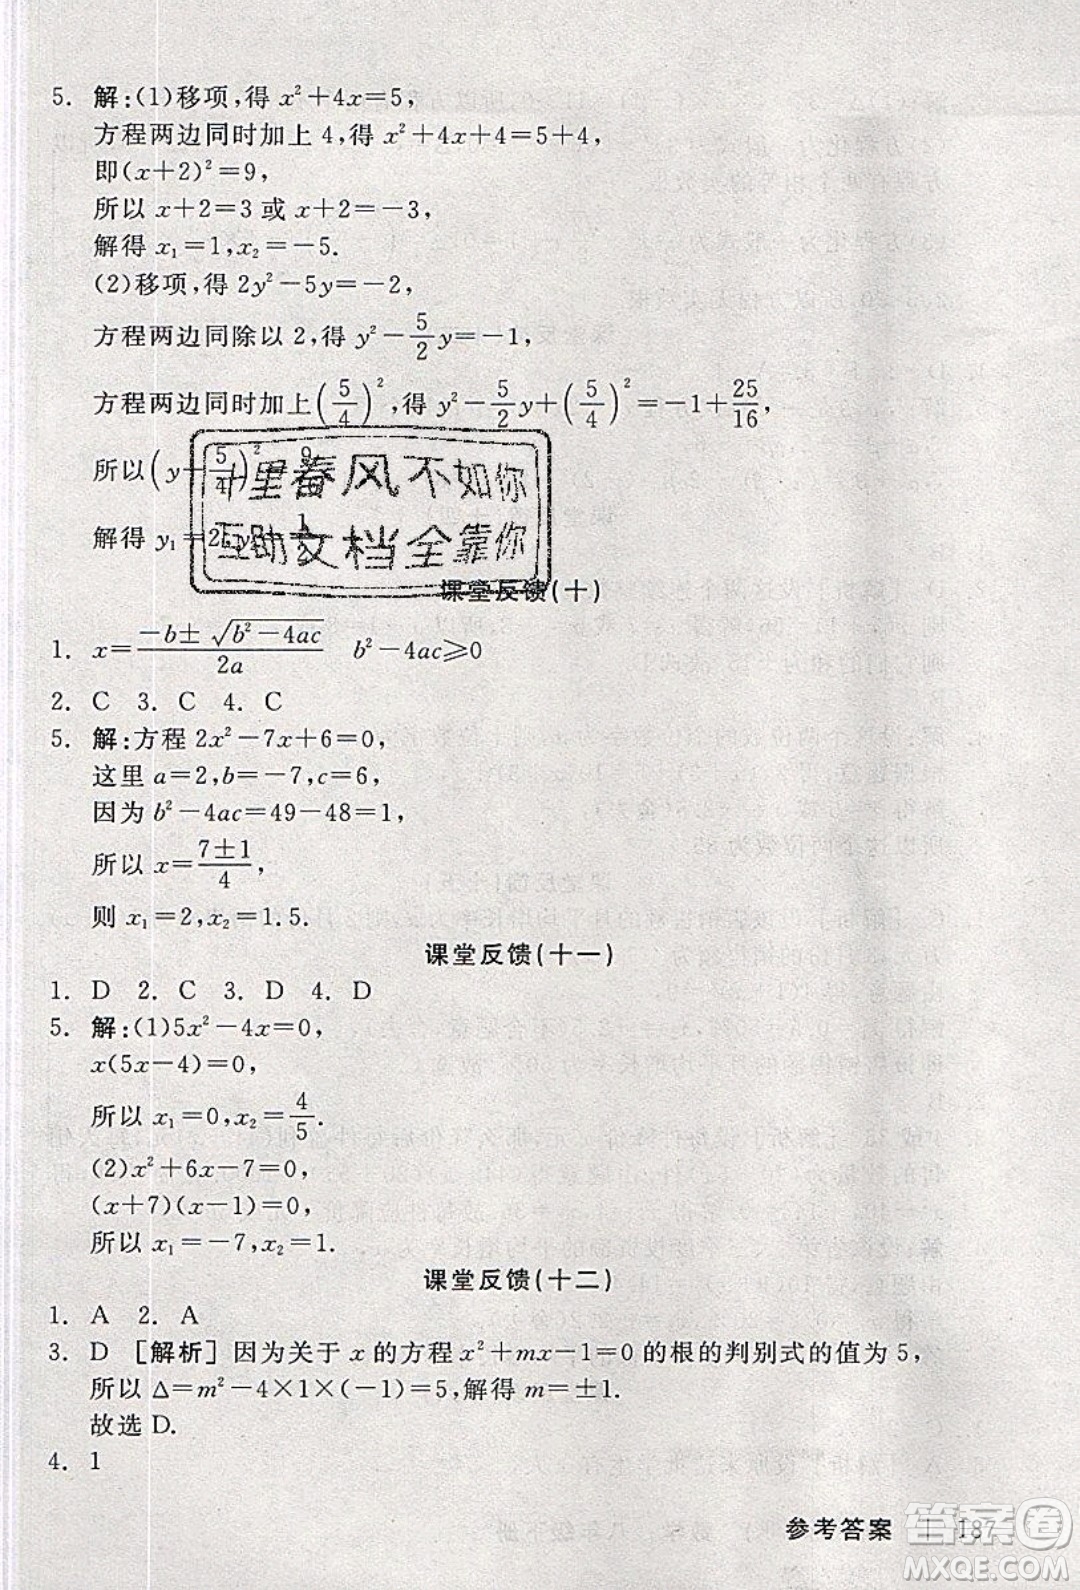 5. 解:(1)移项,得 x²+4x=5,
方程两边同时加上 4,得 x²+4x+4=5+4,
即(x+2)²=9,
所以 x+2=3 或 x+2=-3,
解得 x₁=1,x₂=-5.
(2)移项,得 2y²-5y=-2,
方程两边同除以 2,得 y²-5/2y=-1,
方程两边同时加上(5/4)²,得 y²-5/2y+(5/4)²=-1+25/16,
所以(y+5/4)²=9
解得 y₁=2,y 1/2
十里春风不如你
互助文档全靠你
课堂反馈(十)
1. x=(-b±√(b²-4ac))/2a b²-4ac≥0
2. C 3. C 4. C
5. 解:方程 2x²-7x+6=0,
这里 a=2,b=-7,c=6,
因为 b²-4ac=49-48=1,
所以 x=(7±1)/4,
则 x₁=2,x₂=1.5.
课堂反馈(十一)
1. D 2. C 3. D 4. D
5. 解:(1)5x²-4x=0,
x(5x-4)=0,
所以 x₁=0,x₂=4/5.
(2)x²+6x-7=0,
(x+7)(x-1)=0,
所以 x₁=-7,x₂=1.
课堂反馈(十二)
1. A 2. A
3. D [解析]因为关于 x 的方程 x²+mx-1=0 的根的判别式的值为 5,
所以 Δ=m²-4×1×(-1)=5,解得 m=±1.
故选 D.
4. 1
参考答案 | 187
答案圈
MXQE.COM